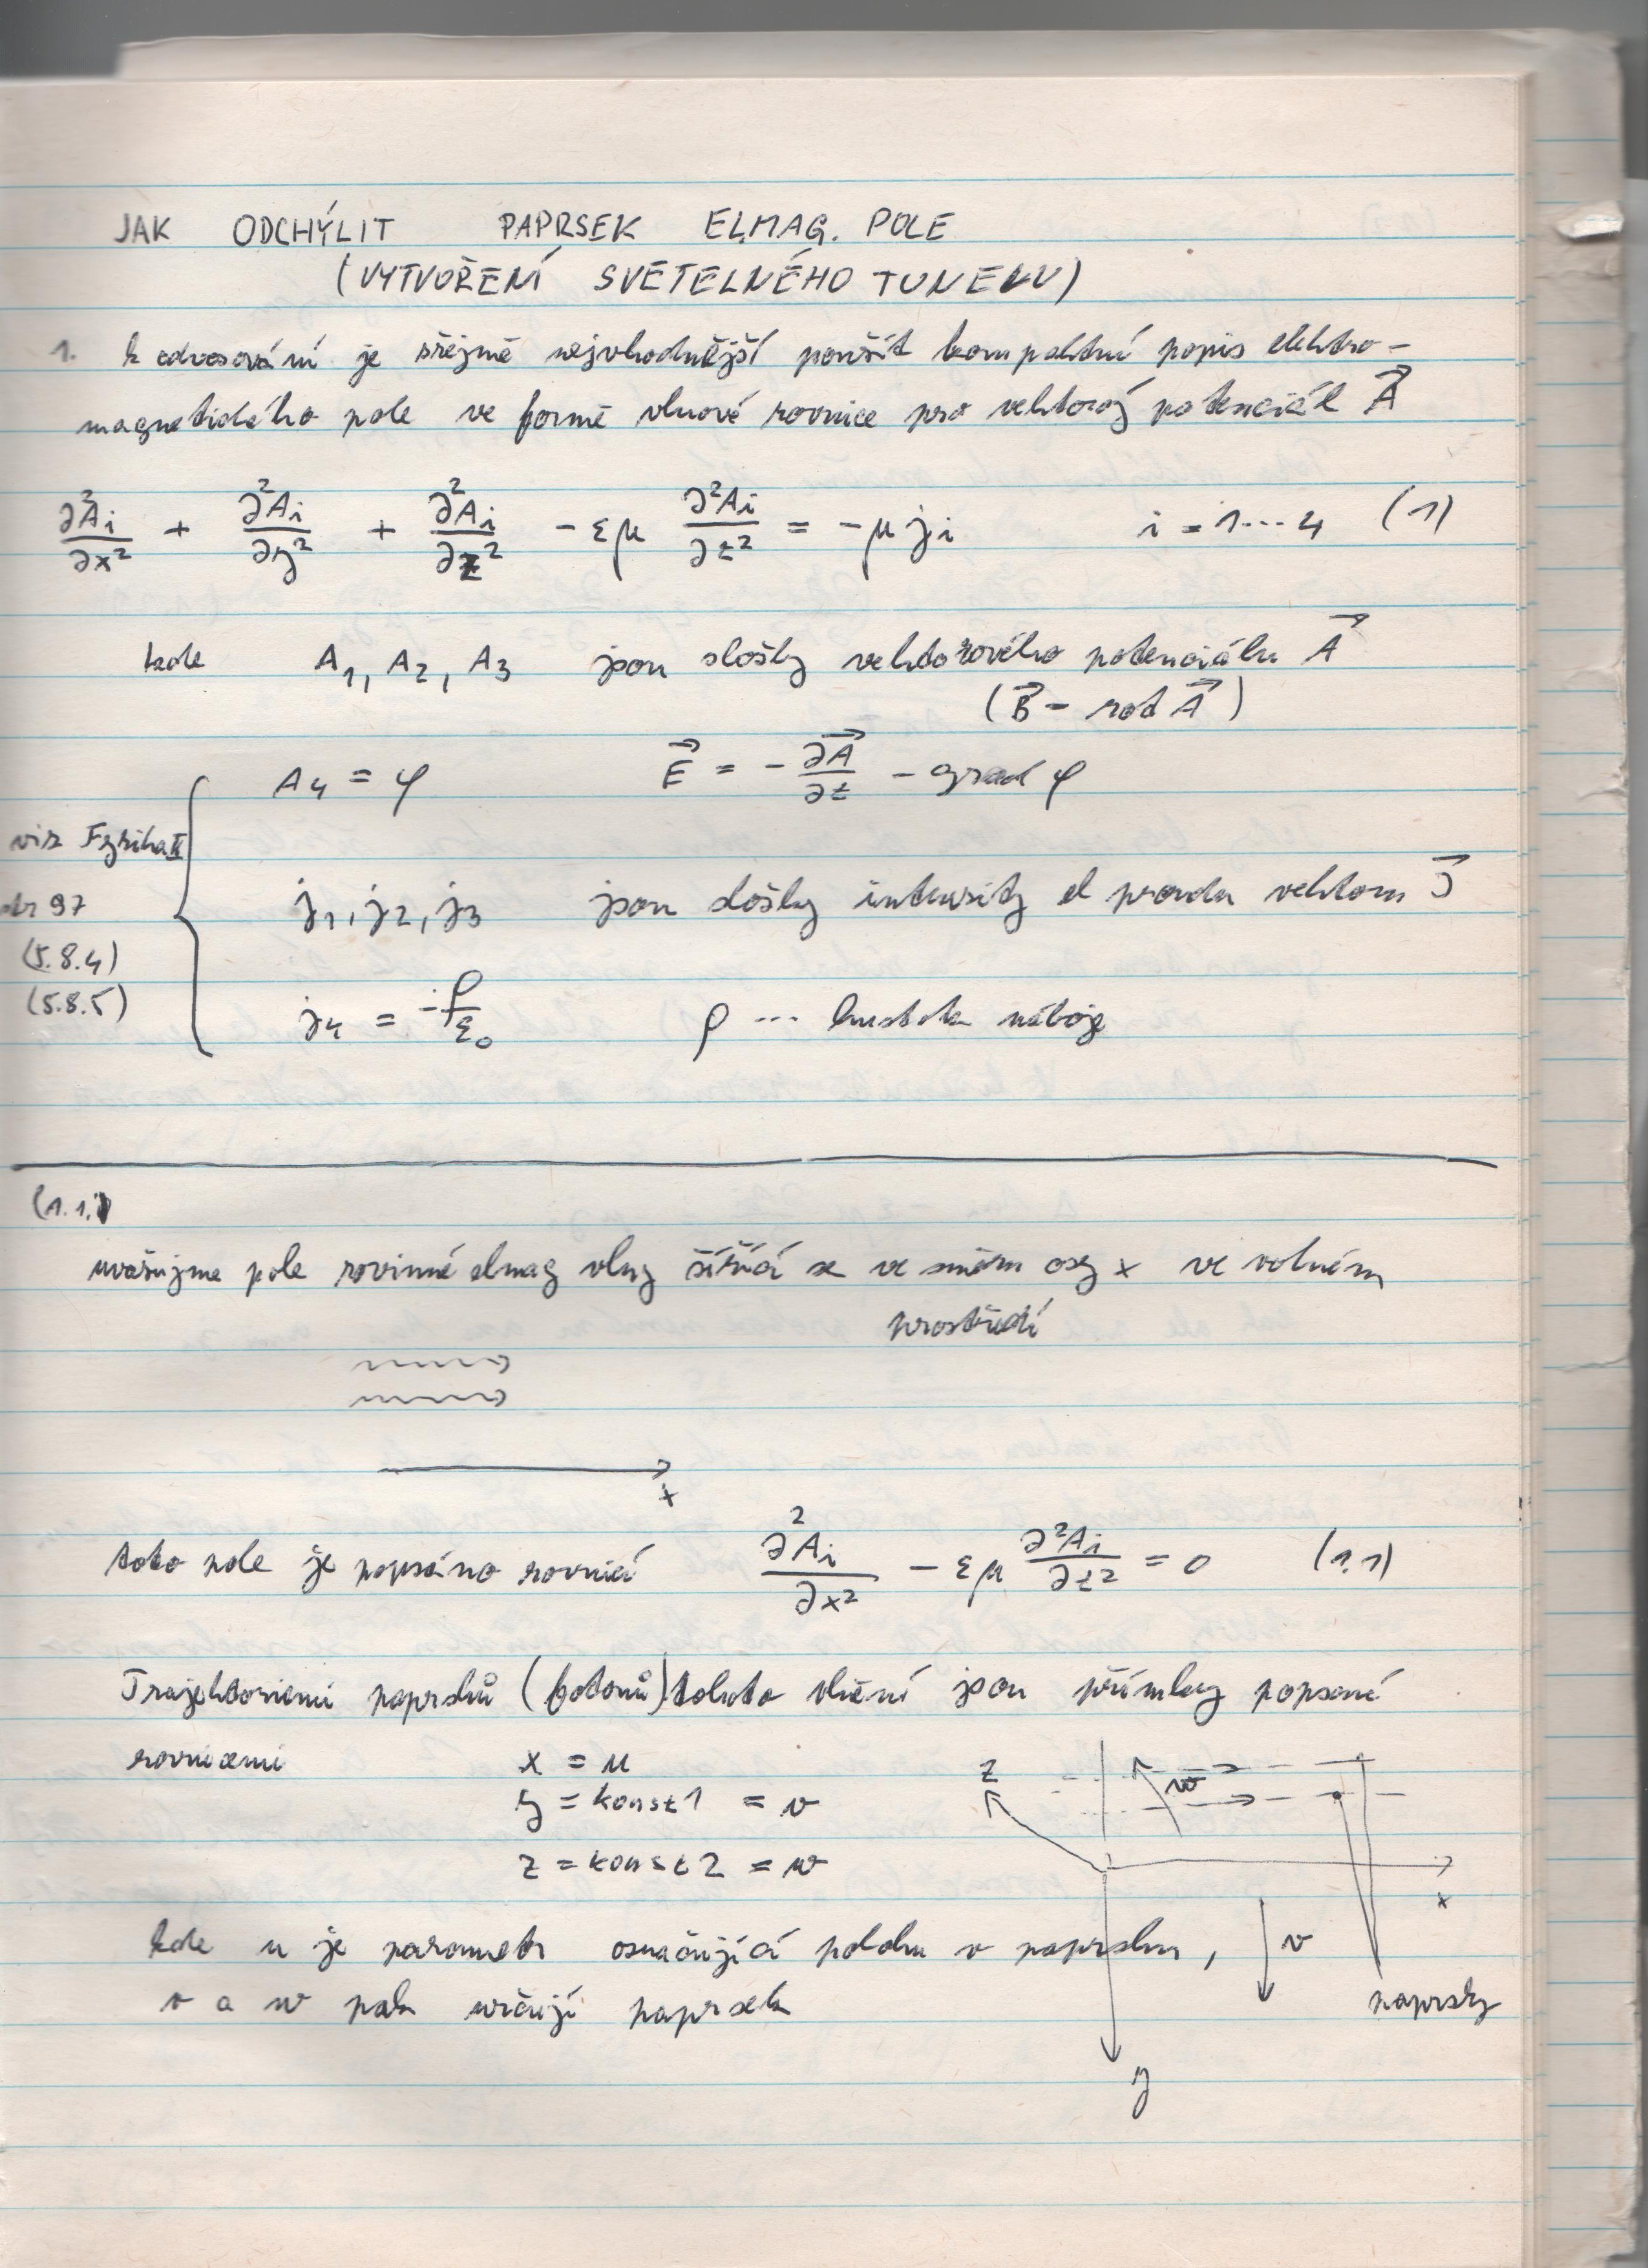 JAK ODCHÝLIT PAPRSEK ELMAG. POLE
(VYTVOŘENÍ SVĚTELNÉHO TUNELU)
1. k odvození je zřejmě nejvhodnější použít kompaktní popis elektro-
magnetického pole ve formě vlnové rovnice pro vektorový potenciál A⃗
∂²Ai/∂x² + ∂²Ai/∂y² + ∂²Ai/∂z² - εμ ∂²Ai/∂t² = -μ ji i = 1...4 (1)
kde A1, A2, A3 jsou složky vektorového potenciálu A⃗
(B⃗ = rot A⃗)
A4 = φ E⃗ = - ∂A⃗/∂t - grad φ
viz Fyzika II
str 97
(5.8.4)
(5.8.5)
j1, j2, j3 jsou složky intenzity el proudu vektoru J⃗
j4 = -ρ/ε0 ρ ... hustota náboje
(1.1)
uvažujme pole rovinné elmag vlny šířící se ve směru osy x ve volném
prostředí
x
toto pole je popsáno rovnicí ∂²Ai/∂x² - εμ ∂²Ai/∂t² = 0 (1.1)
Trajektoriemi paprsků (fotonů) tohoto vlnění jsou přímky popsané
rovnicemi x = u
y = konst1 = v
z = konst2 = w
z w
x
kde u je parametr označující polohu v paprsku,
v a w pak určují paprsek
v
paprsky
y